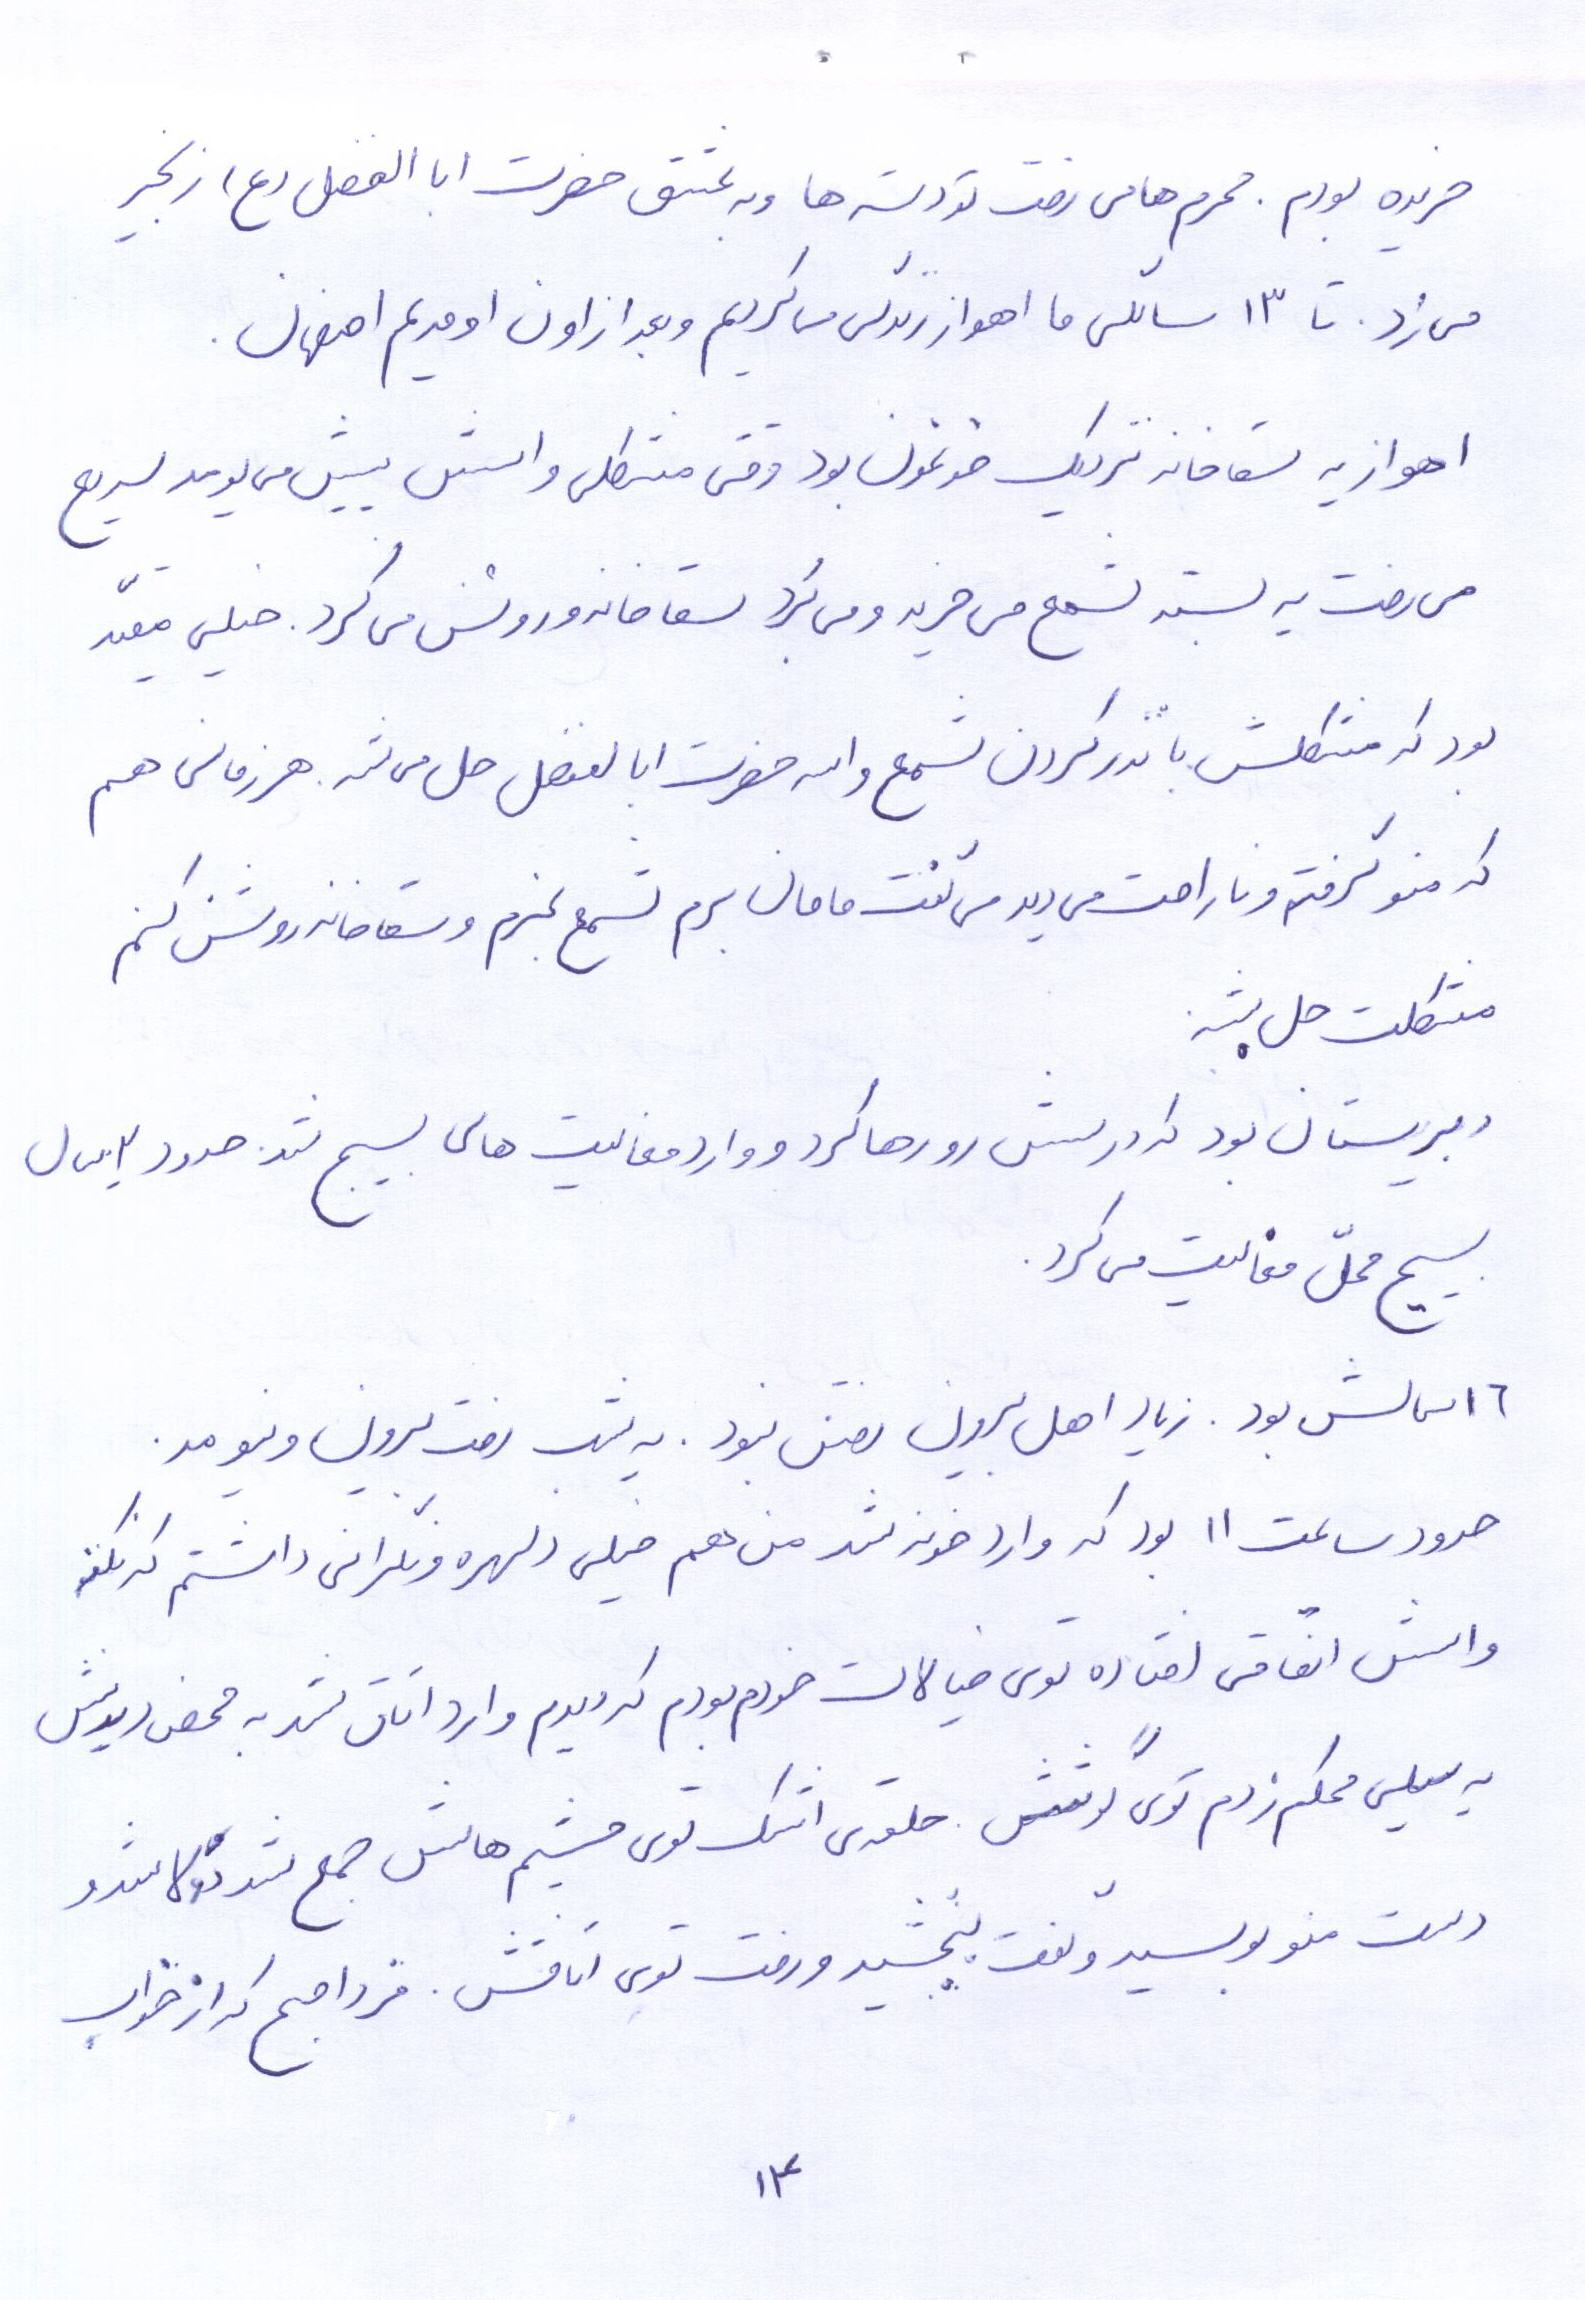 خریده بودم. محرم ها می رفت تو دسته ها و به عشق حضرت ابا الفضل (ع) زنجیر
می زد. تا ۱۳ سالگی ما اهواز زندگی می کردیم و بعد از اون اومدیم اصفهان.
اهواز یه سقاخانه نزدیک خونمون بود وقتی مشکلی واسش پیش می یومد سریع
می رفت یه بسته شمع می خرید و می برد سقاخانه و روشن می کرد. خیلی مقیّد
بود که مشکلش با نذر کردن شمع واسه حضرت ابالفضل حل می شه. هر زمانی هم
که منو گرفته و ناراحت می دید می گفت مامان برم شمع بخرم و سقاخانه روشن کنم
مشکلت حل بشه.
دبیرستان بود که درسش رو رها کرد و وارد فعالیت های بسیج شد. حدود ۲ سال
بسیج محلّ فعالیت می کرد.
۱۶ سالش بود. زیاد اهل بیرون رفتن نبود. یه شب رفت بیرون و نیومد.
حدود ساعت ۱۱ بود که وارد خونه شد من هم خیلی دلهره و نگرانی داشتم که نکنه
واسش اتفاقی افتاده توی خیالات خودم بودم که دیدم وارد اتاق شد به محض دیدنش
یه سیلی محکم زدم توی گوشش. حلقه ی اشک توی چشم هاش جمع شد دولا شد و
دست منو بوسید و گفت ببخشید و رفت توی اتاقش. فردا صبح که از خواب
۱۴